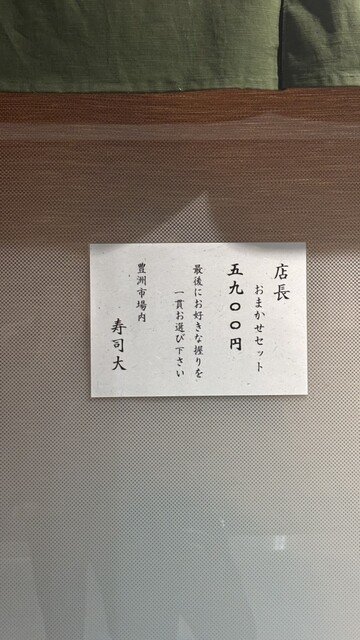 店長
おまかせセット
五九〇〇円
最後にお好きな握りを
一貫お選び下さい
豊洲市場内
寿司大